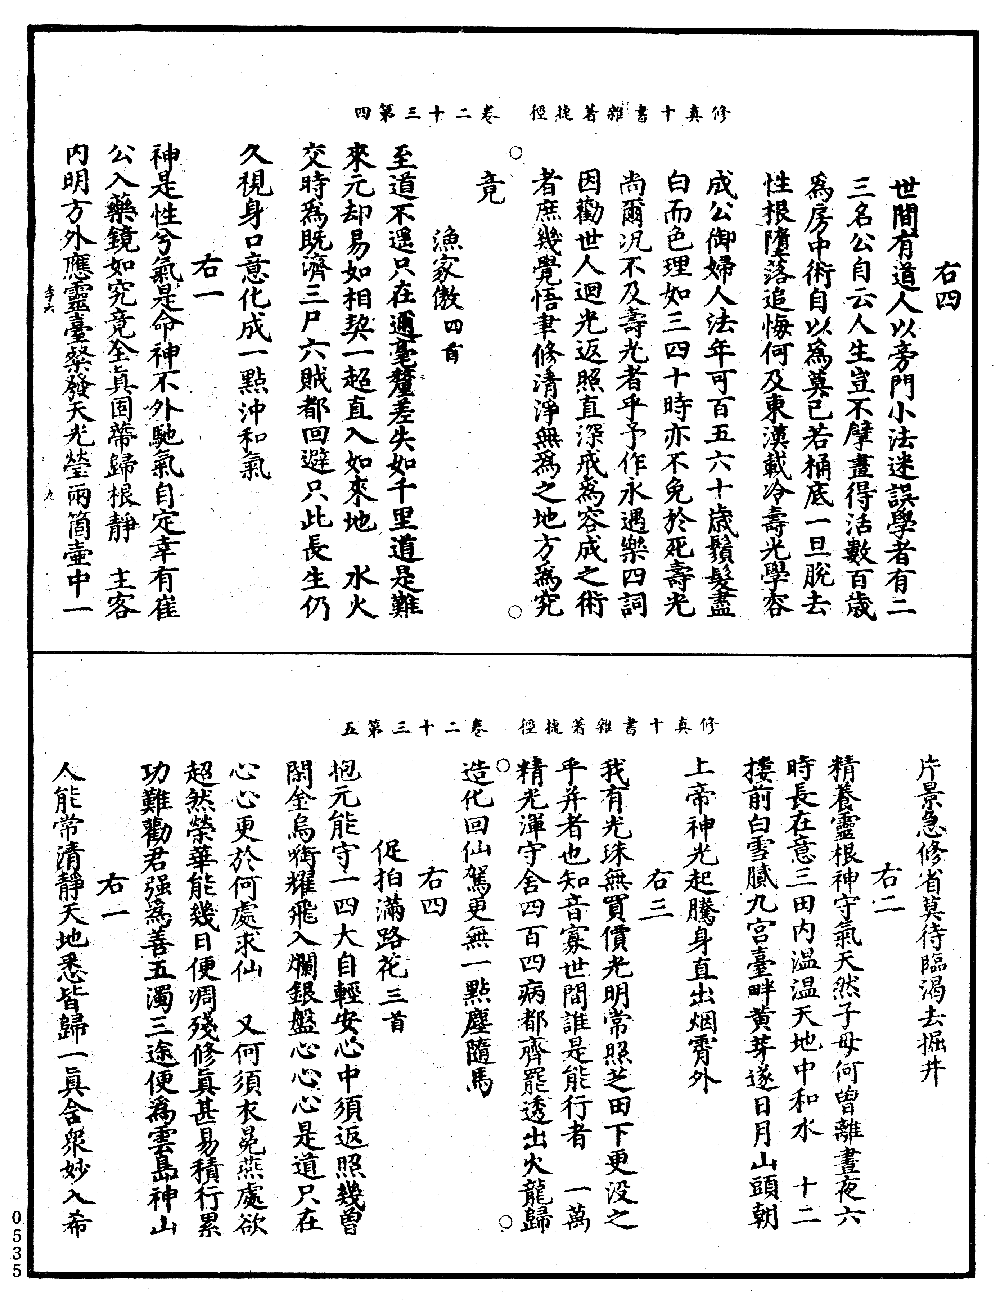 修真十書雜著捷徑　卷二十三第四
右四
世間有道人以旁門小法迷誤學者有二
三名公自云人生豈不擘畫得活數百歲
爲房中術自以爲莫已若桶底一旦脫去
性根墮落追悔何及東漢載冷壽光學容
成公御婦人法年可百五六十歲鬚髮盡
白而色理如三四十時亦不免於死壽光
尚爾況不及壽光者乎予作永遇樂四詞
因勸世人迴光返照直深戒爲容成之術
者庶幾覺悟聿修清淨無爲之地方爲究
竟
漁家傲四首
至道不遥只在邇毫釐差失如千里道是難
來元却易如相契一超直入如來地　水火
交時爲既濟三尸六賊都回避只此長生仍
久視身口意化成一點沖和氣
右一
神是性兮氣是命神不外馳氣自定幸有崔
公入藥鏡如究竟全眞固蔕歸根靜　主客
内明方外應靈臺䆫發天光瑩兩箇壷中一
修真十書雜著捷徑　卷二十三第五
片景急修省莫待臨渴去掘井
右二
精養靈根神守氣天然子母何曾離晝夜六
時長在意三田内温温天地中和水　十二
摟前白雪膩九宮臺畔黄芽遂日月山頭朝
上帝神光起騰身直出烟霄外
右三
我有光珠無買價光明常照芝田下更没之
乎并者也知音寡世間誰是能行者　一萬
精光渾守舍四百四病都齊罷透出火龍歸
造化回仙駕更無一點塵隨馬
右四
促拍滿路花三首
抱元能守一四大自輕安心中須返照幾曽
閑金烏衒耀飛入爛銀盤心心心是道只在
心心更於何處求仙　又何須衣冕燕處欲
超然榮華能幾日便凋殘修眞甚易積行累
功難勸君强爲善五濁三途便爲雲島神山
右一
人能常清靜天地悉皆歸一眞含衆妙入希
0535